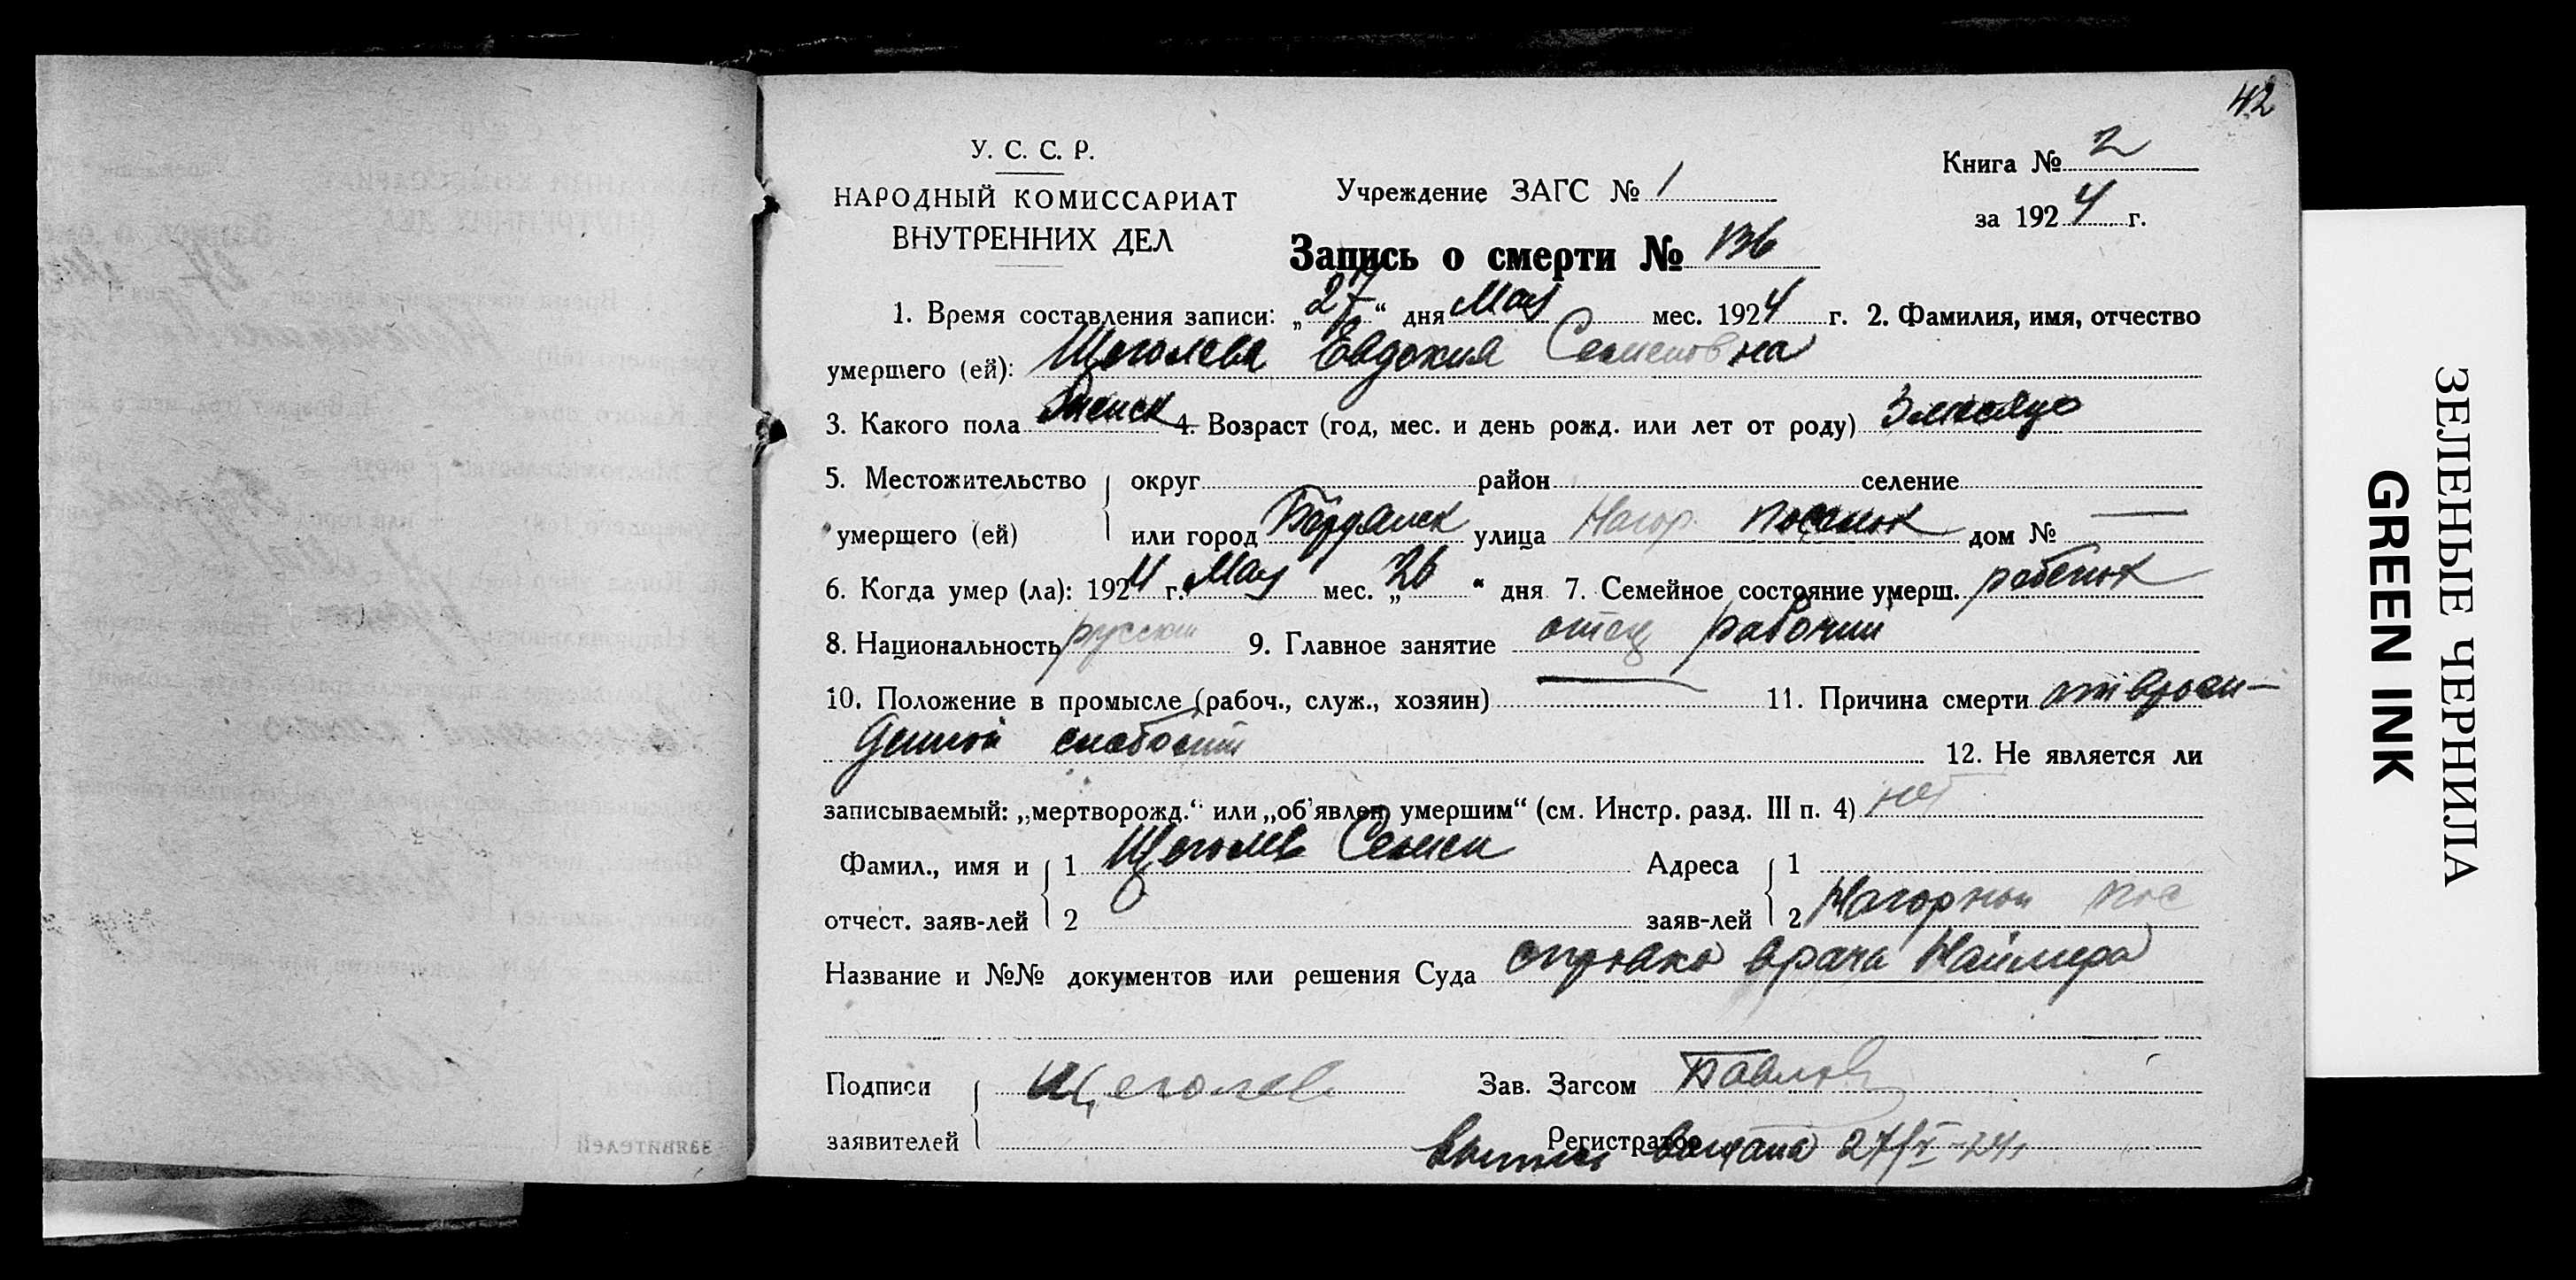 42
У. С. С. Р.
НАРОДНЫЙ КОМИССАРИАТ
ВНУТРЕННИХ ДЕЛ
Учреждение ЗАГС № 1
Книга № 2
за 1924 г.
Запись о смерти № 136
1. Время составления записи: „27“ дня Мая мес. 1924 г. 2. Фамилия, имя, отчество
умершего (ей): Щеголева Евдокия Семеновна
3. Какого пола женск 4. Возраст (год, мес. и день рожд. или лет от роду) 3 месяца
5. Местожительство округ район селение
умершего (ей) или город Бердянск улица Нагор. поселок дом № —
6. Когда умер (ла): 1924 г. Мая мес. „26“ дня 7. Семейное состояние умерш. ребенок
8. Национальность русский 9. Главное занятие отец рабочий
10. Положение в промысле (рабоч., служ., хозяин) — 11. Причина смерти от врож-
денной слабости 12. Не является ли
записываемый: „мертворожд.“ или „об'явлен умершим“ (см. Инстр. разд. III п. 4) нет
Фамил., имя и 1 Щеголев Семен Адреса 1
отчест. заяв-лей 2 заяв-лей 2 Нагорной пос
Название и №№ документов или решения Суда справка врача Наймера
Подписи Щеголев Зав. Загсом Павлов
заявителей Регистратор
выпись 27/V-24
заявителей
ЗЕЛЕНЫЕ ЧЕРНИЛА
GREEN INK